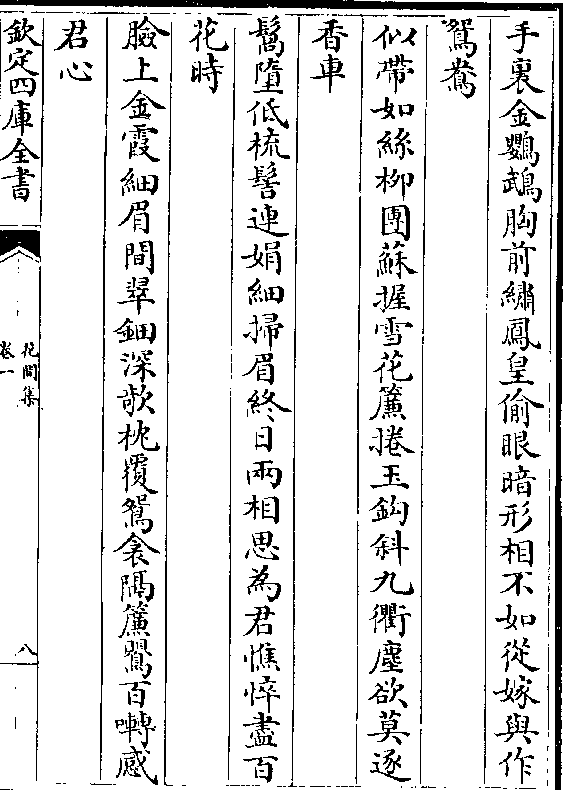 手裏金鸚鵡胸前繡鳳皇偷眼暗形相不如從嫁與作
鴛鴦
似帶如絲柳團蘇握雪花簾捲玉鈎斜九衢塵欲莫逐
香車
鬌墮低梳髻連娟細掃眉終日兩相思為君憔悴盡百
花時
臉上金霞細眉間翠鈿深欹枕覆鴛衾隔簾鶯百囀感
君心
欽定四庫全書
花間集
卷一
八